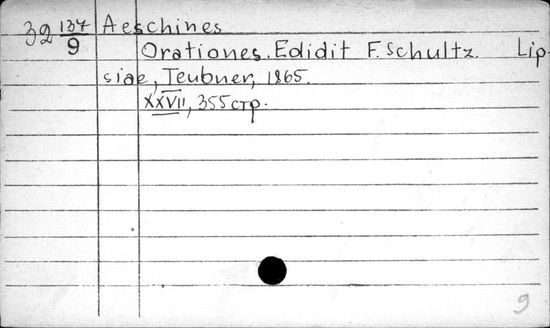 32 137/9 Aeschines
Orationes. Edidit F. Schultz. Lip-
siae, Teubner, 1865.
XXVII, 355 стр.
9